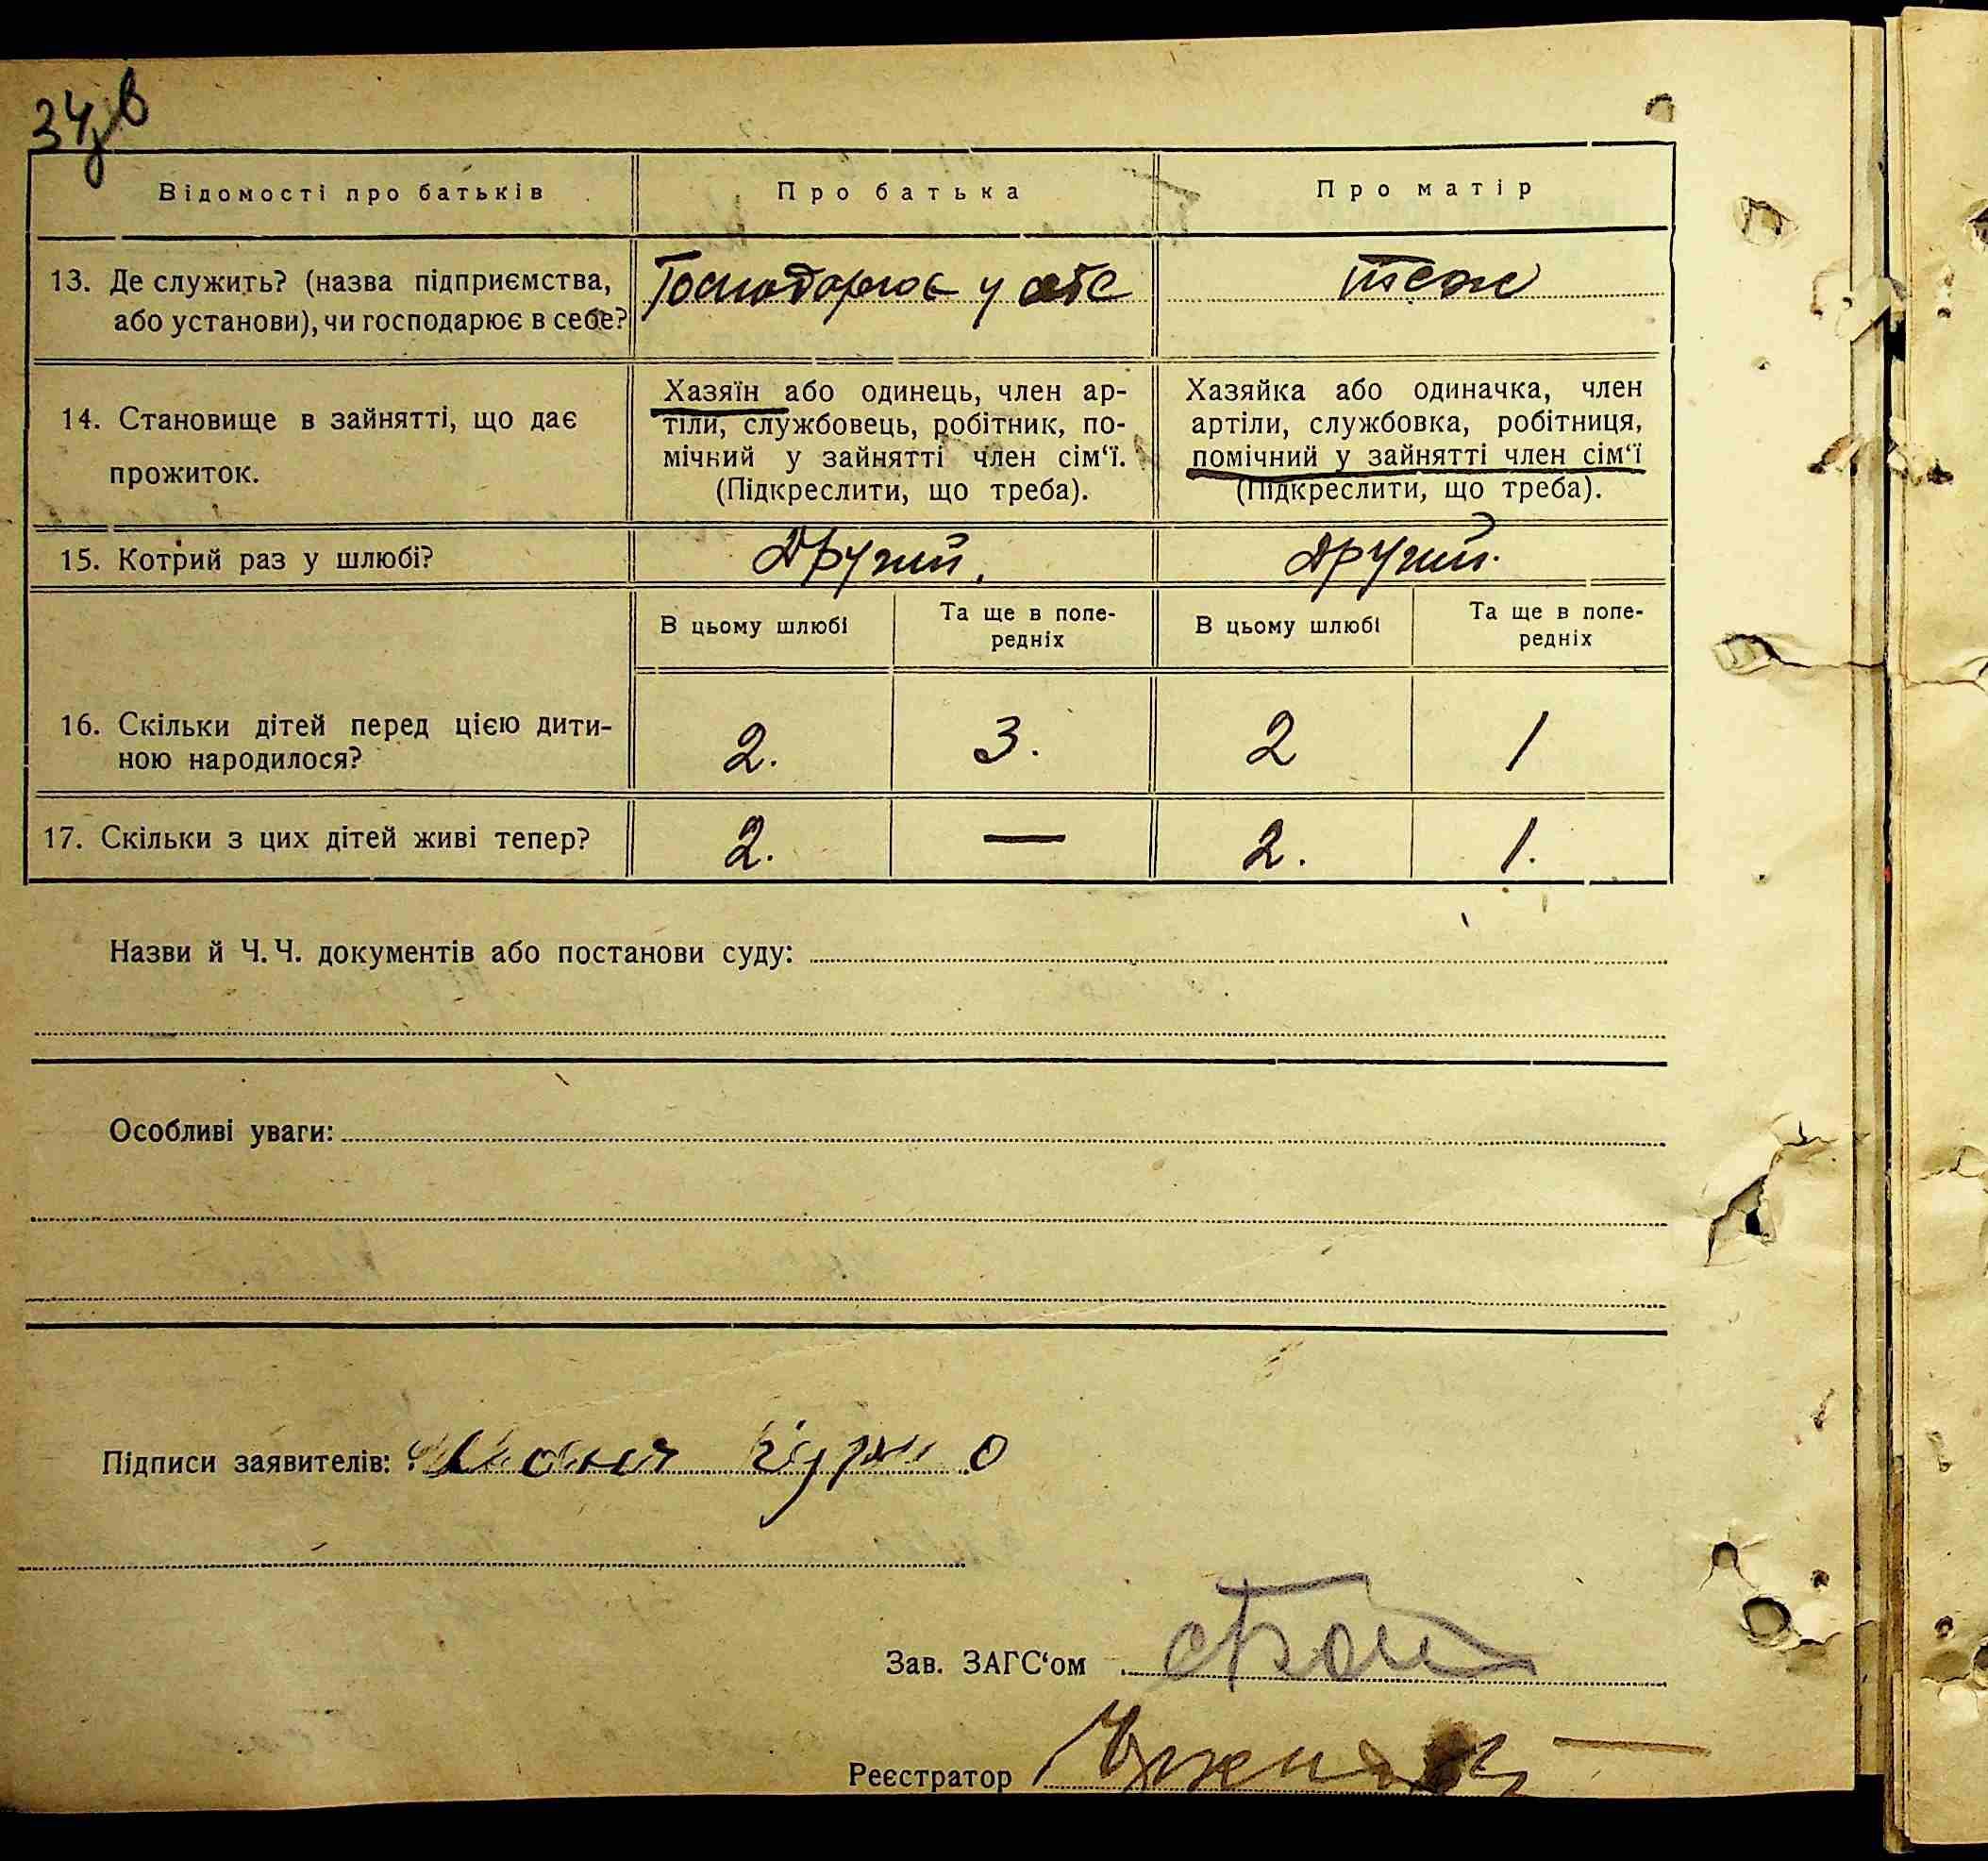 34зв
Відомості про батьків
Про батька
Про матір
13. Де служить? (назва підприємства,
або установи), чи господарює в себе?
Господарює у себе
теж
14. Становище в зайнятті, що дає
прожиток.
Хазяїн або одинець, член ар-
тіли, службовець, робітник, по-
мічний у зайнятті член сім‘ї.
(Підкреслити, що треба).
Хазяйка або одиначка, член
артіли, службовка, робітниця,
помічний у зайнятті член сім‘ї
(Підкреслити, що треба).
15. Котрий раз у шлюбі?
Другий.
Другий.
В цьому шлюбі
Та ще в попе-
редніх
В цьому шлюбі
Та ще в попе-
редніх
16. Скільки дітей перед цією дити-
ною народилося?
2.
3.
2
1
17. Скільки з цих дітей живі тепер?
2.
—
2.
1.
Назви й Ч.Ч. документів або постанови суду:
Особливі уваги:
Підписи заявителів:
Зав. ЗАГС‘ом
Реєстратор